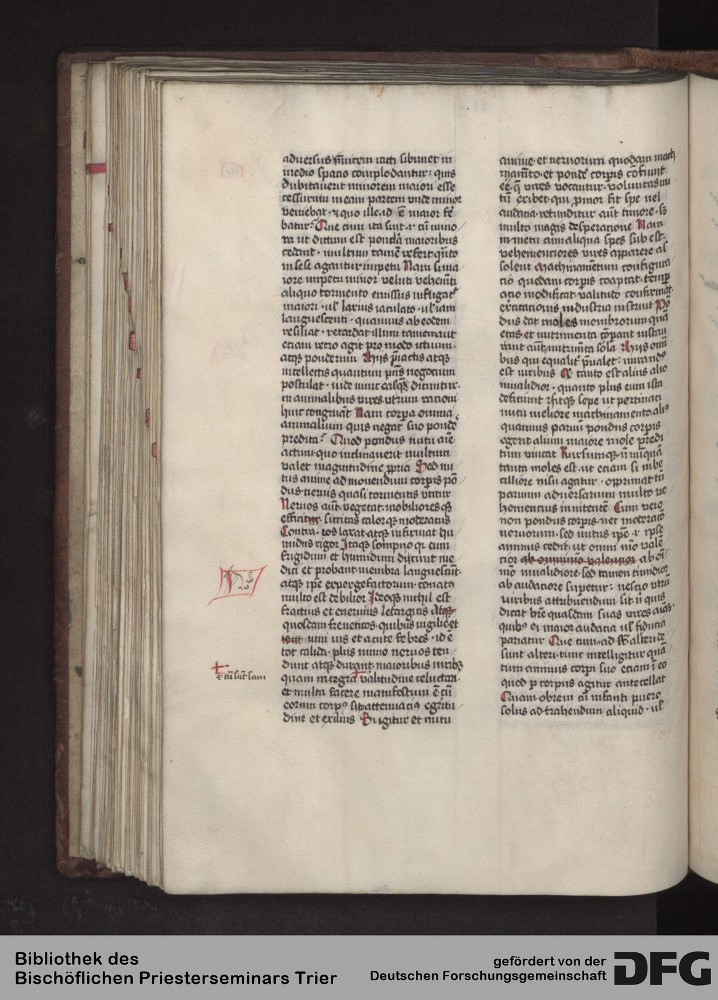 adversus invicem iacti sibimet in
medio spacio complodantur · quis
dubitaverit minorem maiori esse
cessurum in eam partem unde minor
veniebat · a quo ille · id ē maior fe
batur · Que cum ita sint · et cū mino
ra ut dictum est ponďa maioribus
cedant · multum tamē refert qͣnto
in sese agantur impetu Nam si ma
iore impetu minor veluti vehemēti
aliquo tormento emissus infligatˀ
maiori · ul' laxius iaculato · ul' iam
languescenti · quamvis ab eodem
resiliat · retardat illum tamen aut
eciam retro agit pro modo ictuum ·
atqꝫ ponderum Hijs p̄iactis atqꝫ
intellectis quantum pn̄s negocium
postulat · vide nunc easqꝫ dicuntur
in animalibus vires utrum racioni
huic congruāt Nam corpa omnia
animalium quis negat suo pondē
predita · Quod pondus nutu aīe
actum · quo inclinaverit multum
valet magnitudine ppria Sed nu
tus anime ad movendum corpis pō
dus · nervis quasi tormentis utitur
Nervos aūt vegetat · mobilioresqꝫ
efficit · siccitas calorqꝫ moderatus
Contra · eos laxat atqꝫ infirmat hu
midus rigor Itaqꝫ sompno qͥ eum
frigidum et humidum dixerunt me
dici et probant membra languescūt ·
atqꝫ ip̄e expergefactorum conatu
multo est debilior Ideoqꝫ nichil est
fractius et enervius letargicis Atqꝫ
quosdam freneticos quibus vigilie et
vini vis et acute febres · id ē
tot calida · plus nimio nervos ten
dunt atqꝫ durant maioribus viribꝫ
quam integra valitudine reluctari
et multa facere manifestum ē cū
eorum corpꝯ sit attenuaciꝯ egritu
dine et exilius Si igitur et nutu
et cū sūt sani
anime · et nervorum quodam mach
inamēto · et pondē corpis cōfiunt
eē · q̄ vires vocantur · voluntas nu
tū exibet · qui pmior fit spe vel
audacia · retunditur aūt timore · et
multo magis desperacione Nam
in metu cum aliqua spes sub est ·
vehemenciores vires apparere
solent Machinamentum configura
cio quedam corpis coaptat · temp̄
acio modificat · valitudo confirmat ·
exercitacionis industria instruit Pō
dus dat moles membrorum quā
etas et nutrimenta cōpant instau
rant aūt nutrimēta sola Hijs om̄i
bus qui equalitˀ p̄ualet · mirandꝯ
est viribus Et tanto est alius alio
invalidior · quanto plus eum ista
deficiunt · fitqꝫ sepe ut pertinaci
nutu meliore machinamento aliꝯ
quamvis parvū pondus corpis
egerit alium maiore mole p̄redi
tum vincat Rursumqꝫ ū nuncqͣ
tanta moles est · ut eciam si imbe
cilliore nisu agatur · opprimat tn̄
parvum adversarium multo ve
hemencius innitentē Cum vero
non pondus corpis · nec moderacō
nervorum · sed nutus ip̄e · et ip̄se
animus cedit · ut omni mō vale
cior ab omnino valencior ab oī
mō invalidiore · sed tamen timidior
ab audaciore supetur · nescio utrū
viribus attribuendum sit · ū quis
dicat hūc quasdam suas vires aīaꝫ ·
quibꝯ ei maior audacia ul' fiducia
pariatur Que cum ad s̄t alteri de
sunt alteri · tunc intelligitur quā
tum animus corpi suo eciam ī eo
quod p corpus agitur antecellat
Quamobrem cū infanti puero
solus ad trahendum aliquid · ul'
Bibliothek des
Bischöflichen Priesterseminars Trier
gefördert von der
Deutschen Forschungsgemeinschaft
DFG